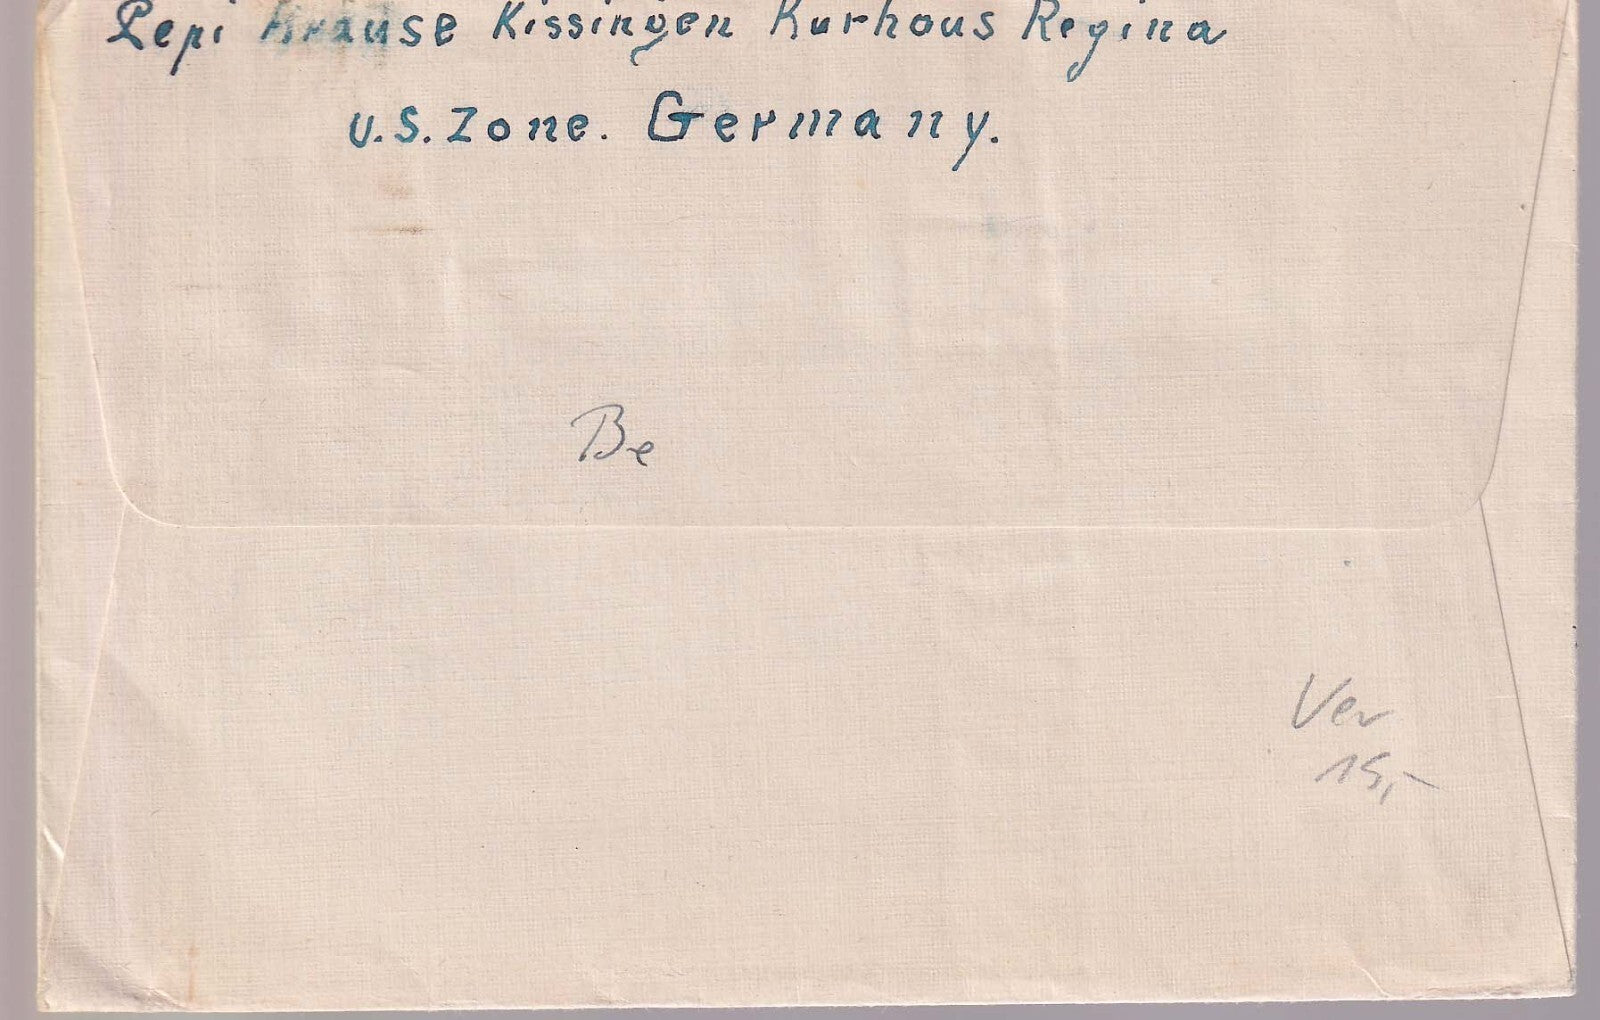 Pepi Krause Kissingen Kurhaus Regina
U.S. Zone. Germany.
Be
Ver
15,-